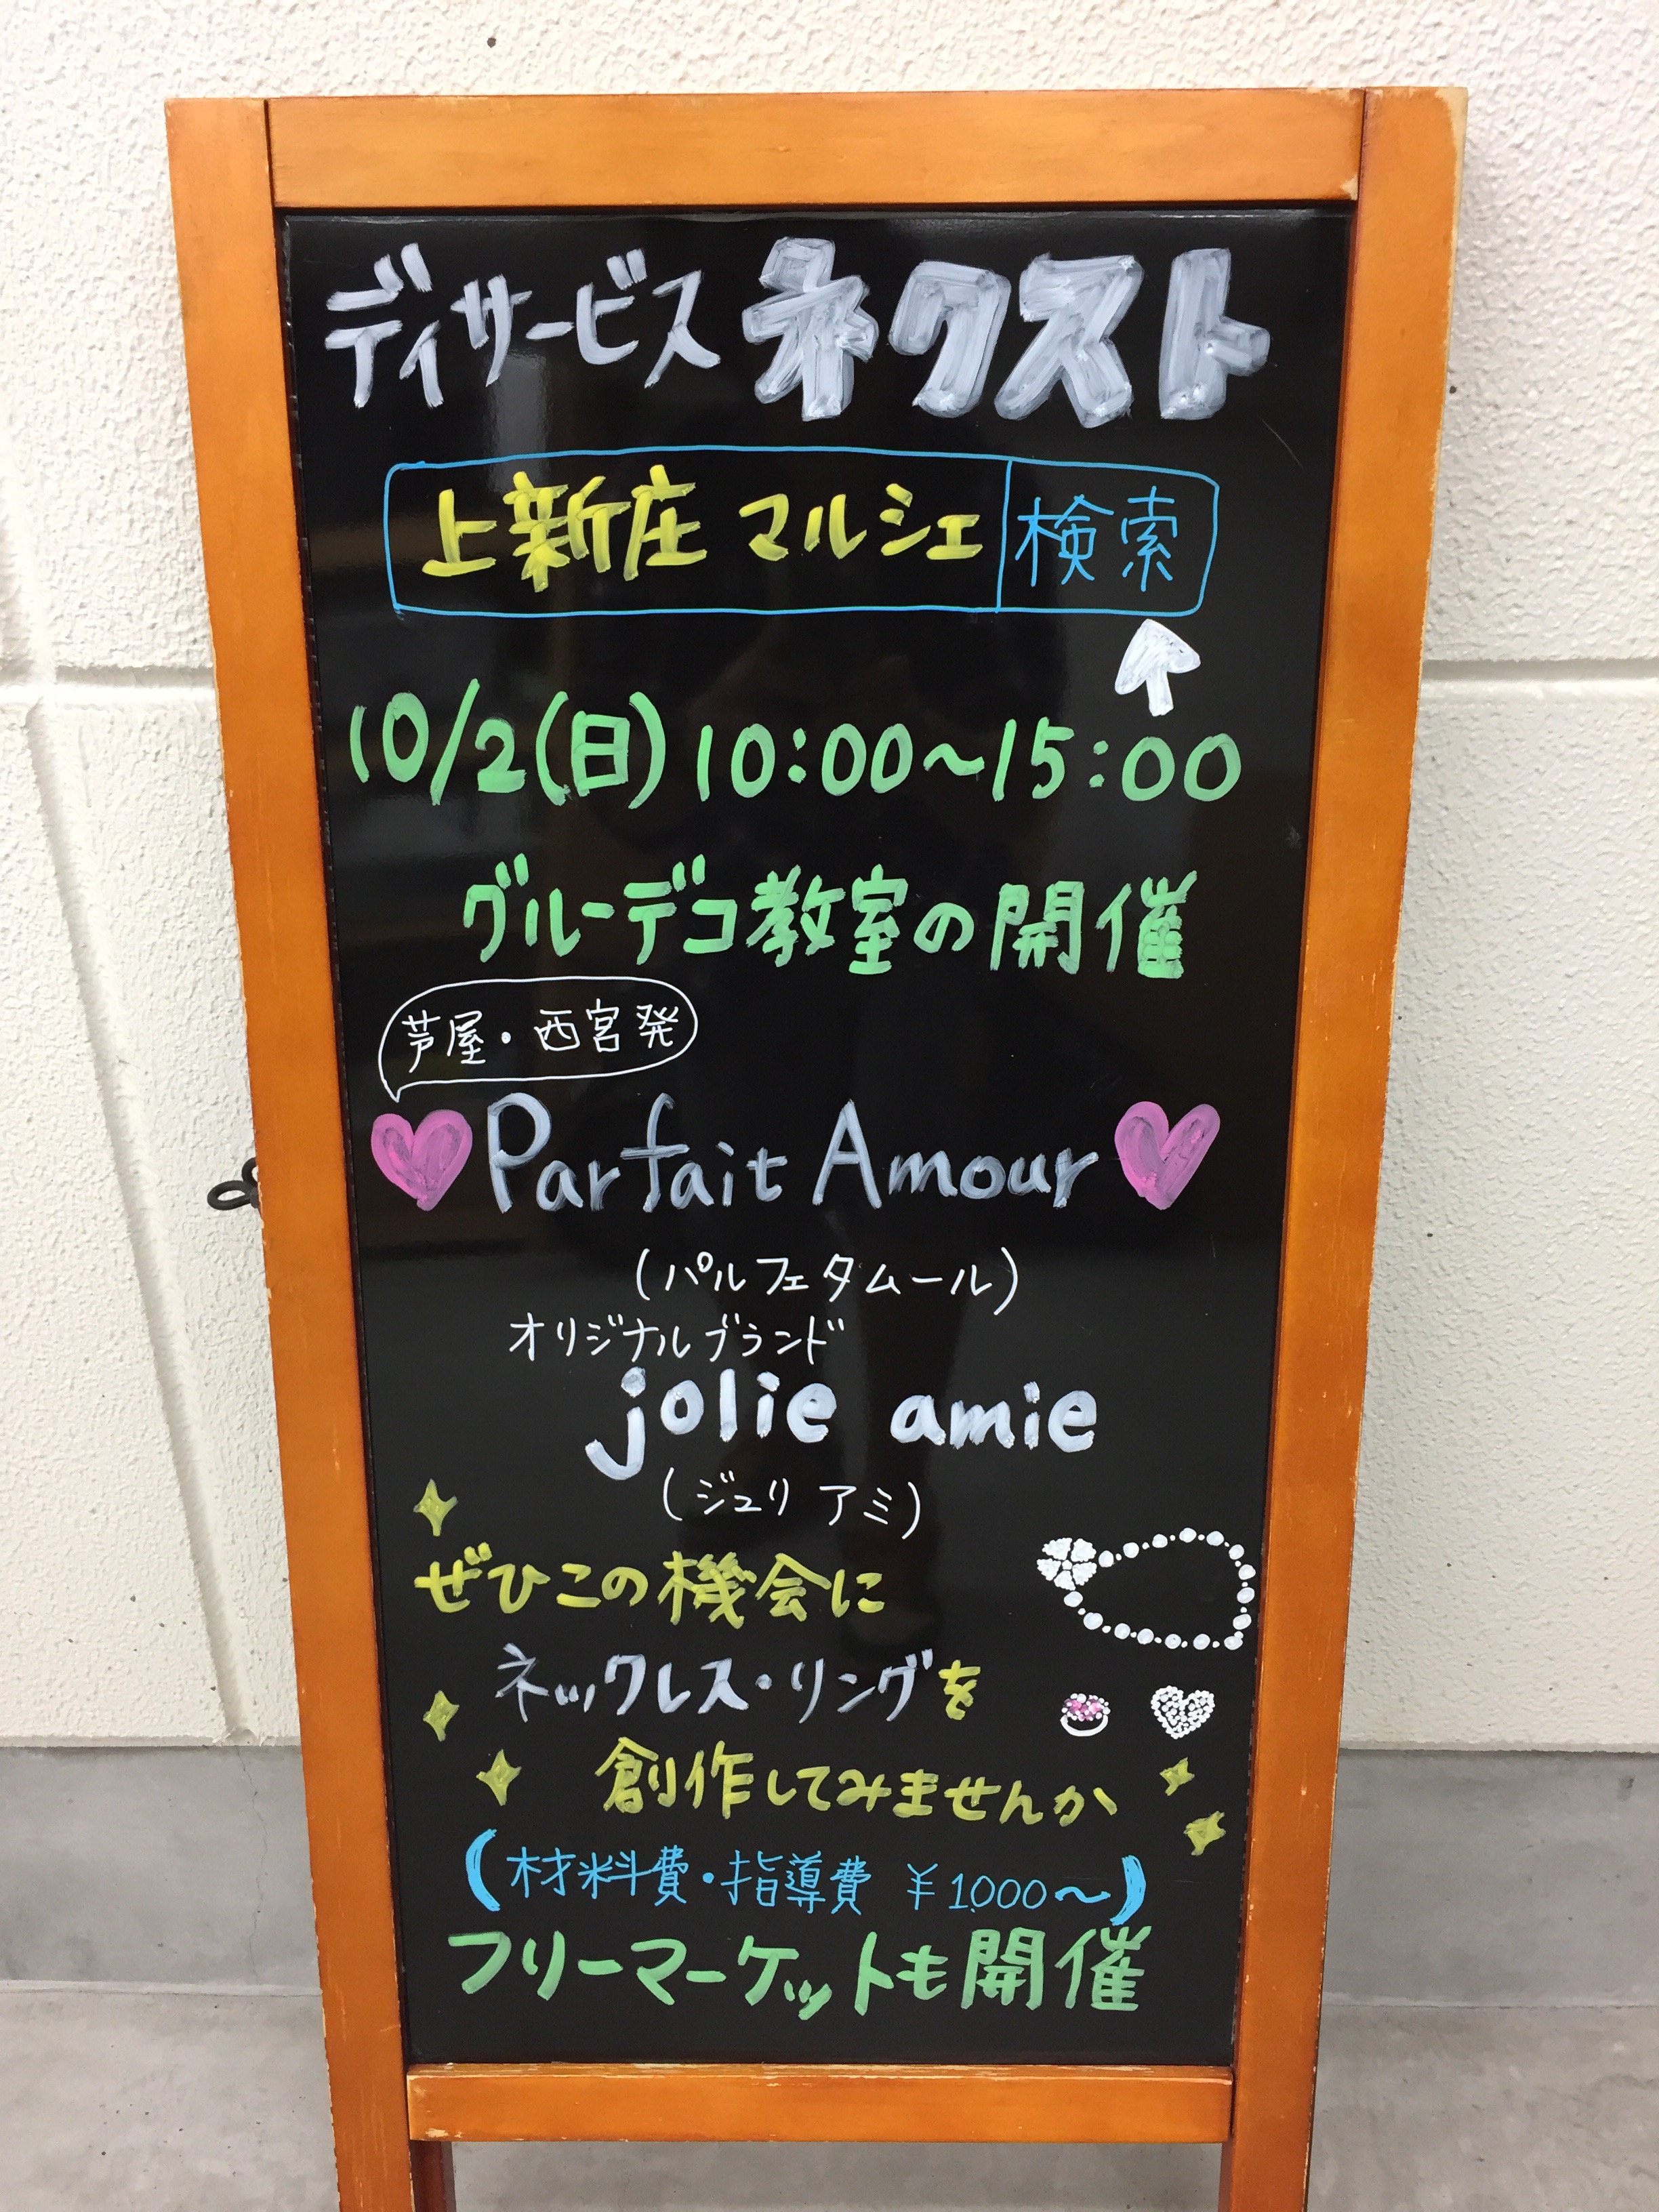 ディサービス ネクスト
上新庄 マルシェ 検索
10/2(日) 10:00〜15:00
グルーデコ教室の開催
芦屋・西宮発
Parfait Amour
(パルフェタムール)
オリジナルブランド
jolie amie
(ジュリ アミ)
ぜひこの機会に
ネックレス・リングを
創作してみませんか
(材料費・指導費 ¥1,000〜)
フリーマーケットも開催